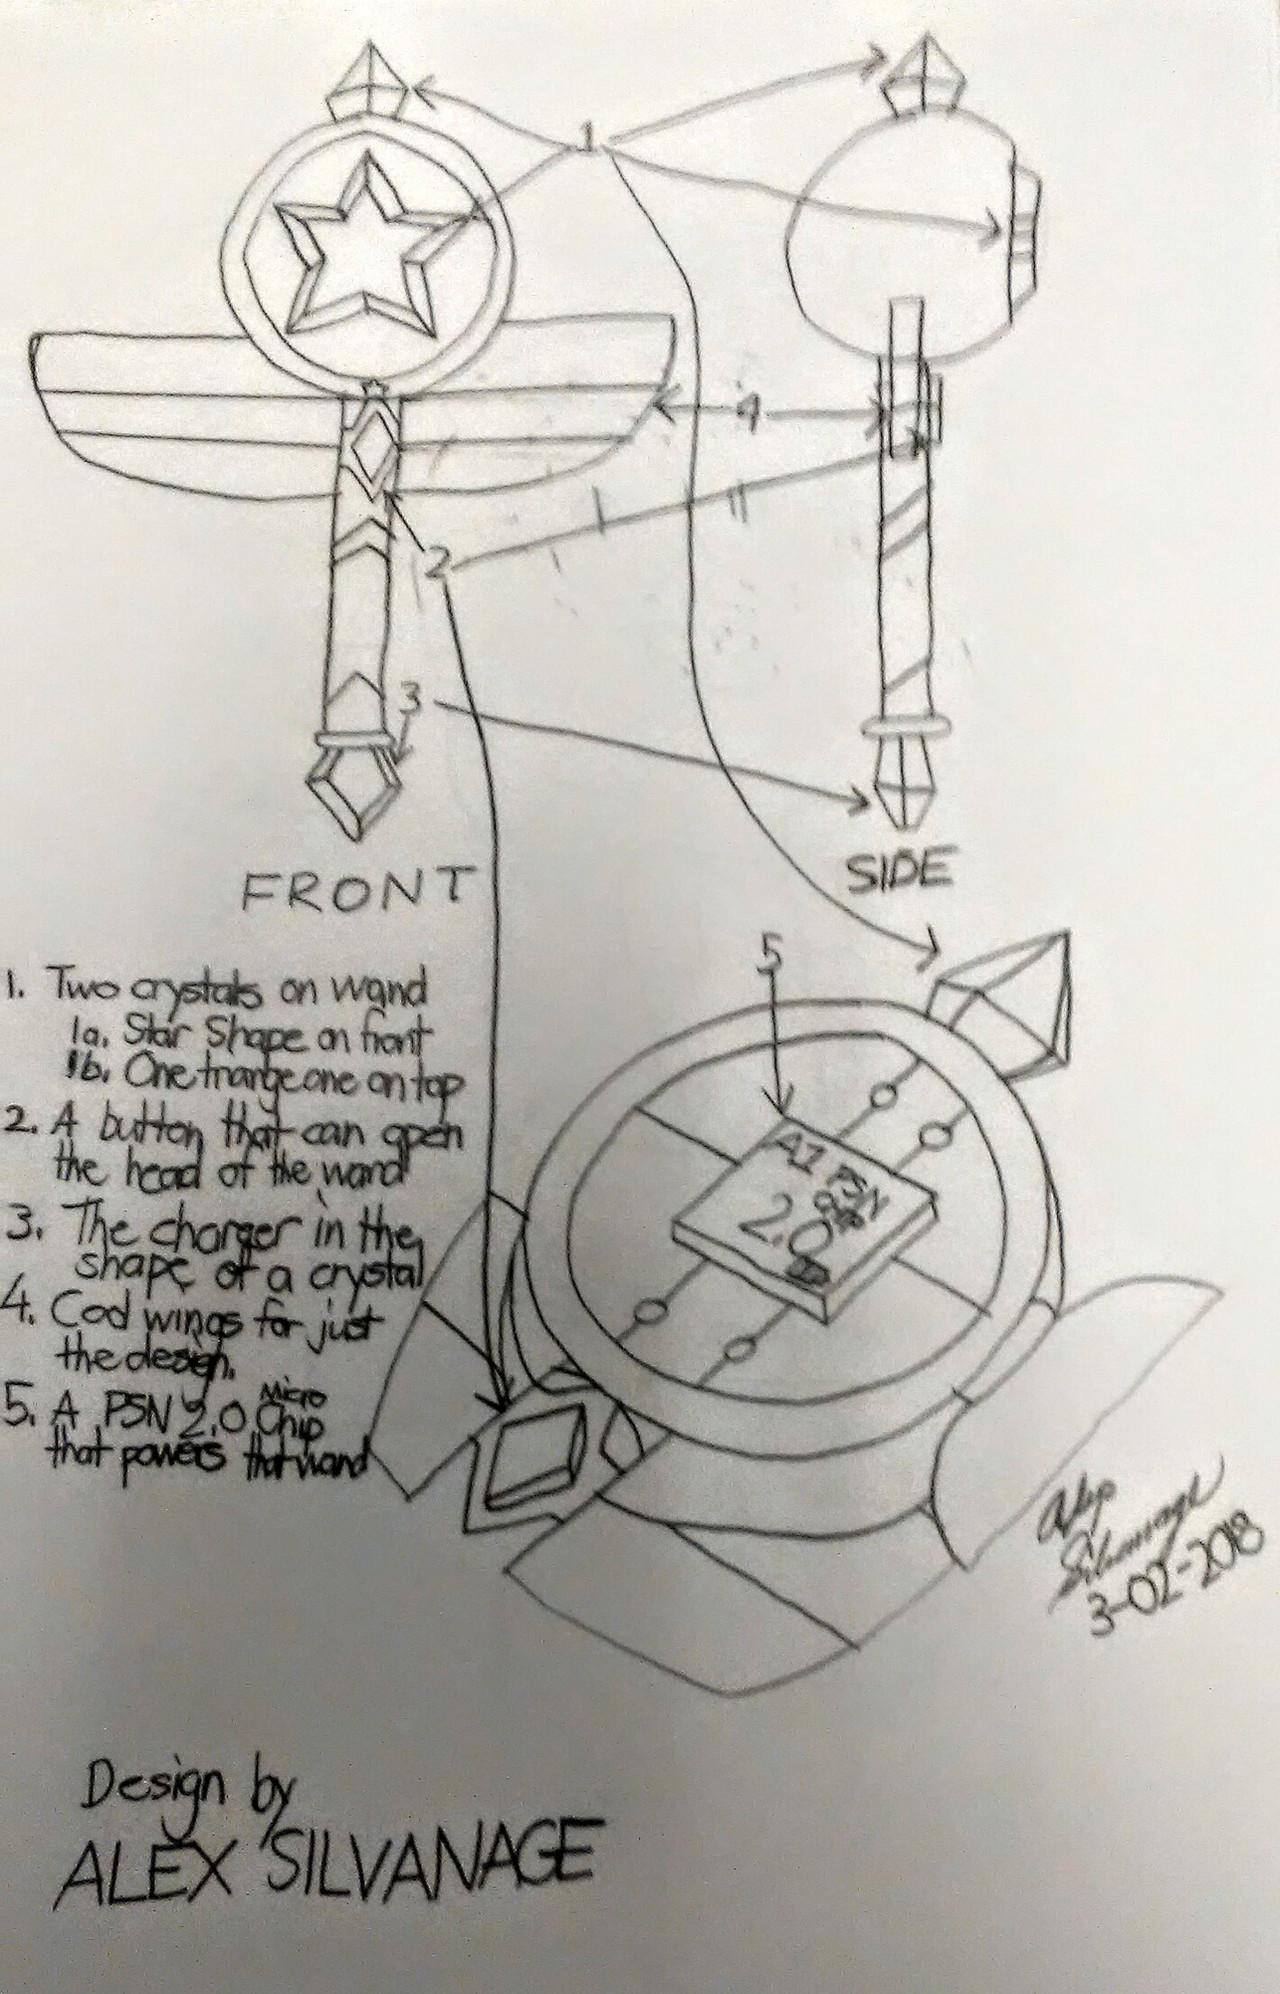 1
4
2
3
FRONT
SIDE
5
1. Two crystals on wand
1a. Star Shape on front
1b. One triangle one on top
2. A button that can open
the head of the wand
3. The charger in the
shape of a crystal
4. Cool wings for just
the design.
5. A PSN 2.0 Micro Chip
that powers that wand
A1 PSN
2.0
Alex
Silvanage
3-02-2018
Design by
ALEX SILVANAGE